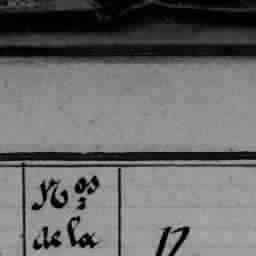 Nos
de la 17